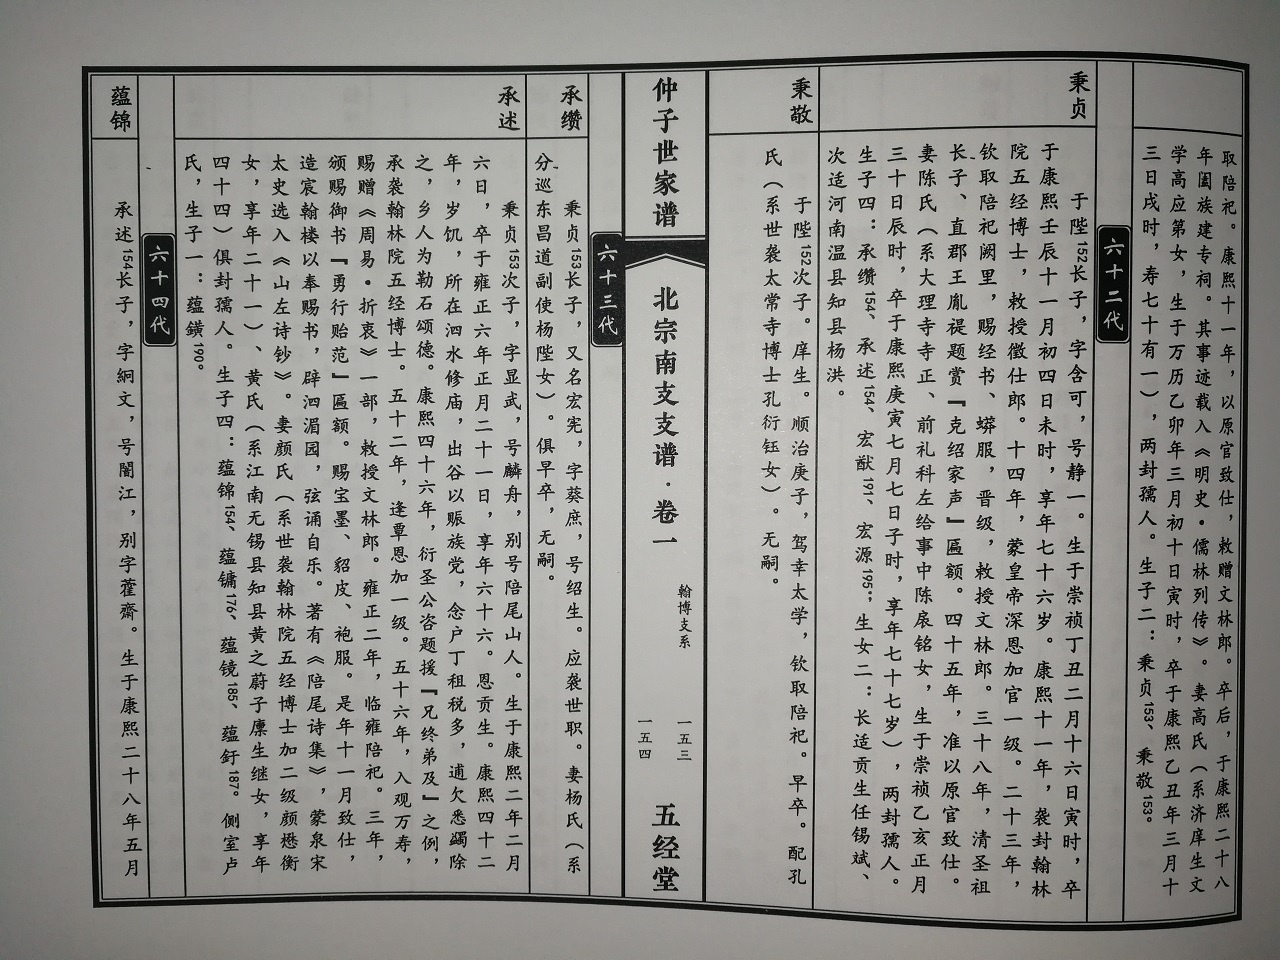 取陪祀。康熙十一年，以原官致仕，敕赠文林郎。卒后，于康熙二十八
年阖族建专祠。其事迹载入《明史·儒林列传》。妻高氏（系济庠生文
学高应第女，生于万历乙卯年三月初十日寅时，卒于康熙乙丑年三月十
三日戌时，寿七十有一），两封孺人。生子二：秉贞153、秉敬153。
六十二代
秉贞
于陛152长子，字含可，号静一。生于崇祯丁丑二月十六日寅时，卒
于康熙壬辰十一月初四日未时，享年七十六岁。康熙十一年，袭封翰林
院五经博士，敕授徵仕郎。十四年，蒙皇帝深恩加官一级。二十三年，
钦取陪祀阙里，赐经书、蟒服，晋级，敕授文林郎。三十八年，清圣祖
长子、直郡王胤禔题赏『克绍家声』匾额。四十五年，准以原官致仕。
妻陈氏（系大理寺寺正、前礼科左给事中陈扆铭女，生于崇祯乙亥正月
三十日辰时，卒于康熙庚寅七月七日子时，享年七十七岁），两封孺人。
生子四：承缵154、承述154、宏猷191、宏源195；生女二：长适贡生任锡斌、
次适河南温县知县杨洪。
秉敬
于陛152次子。庠生。顺治庚子，驾幸太学，钦取陪祀。早卒。配孔
氏（系世袭太常寺博士孔衍钰女）。无嗣。
仲子世家谱
北宗南支支谱·卷一
翰博支系
一五三
一五四
五经堂
六十三代
承缵
秉贞153长子，又名宏宪，字葵庶，号绍生。应袭世职。妻杨氏（系
分巡东昌道副使杨陛女）。俱早卒，无嗣。
承述
秉贞153次子，字显武，号麟舟，别号陪尾山人。生于康熙二年二月
六日，卒于雍正六年正月二十一日，享年六十六。恩贡生。康熙四十二
年，岁饥，所在泗水修庙，出谷以赈族党，念户丁租税多，逋欠悉蠲除
之，乡人为勒石颂德。康熙四十六年，衍圣公咨题援『兄终弟及』之例，
承袭翰林院五经博士。五十二年，逢覃恩加一级。五十六年，入观万寿，
赐赠《周易·折衷》一部，敕授文林郎。雍正二年，临雍陪祀。三年，
颁赐御书『勇行贻范』匾额。赐宝墨、貂皮、袍服。是年十一月致仕，
造宸翰楼以奉赐书，辟泗湄园，弦诵自乐。著有《陪尾诗集》，蒙泉宋
太史选入《山左诗钞》。妻颜氏（系世袭翰林院五经博士加二级颜懋衡
女，享年二十一）、黄氏（系江南无锡县知县黄之蔚子廪生继女，享年
四十四）俱封孺人。生子四：蕴锦154、蕴镛176、蕴镜185、蕴釪187。侧室卢
氏，生子一：蕴鐄190。
六十四代
蕴锦
承述154长子，字䌹文，号闇江，别字藿齋。生于康熙二十八年五月